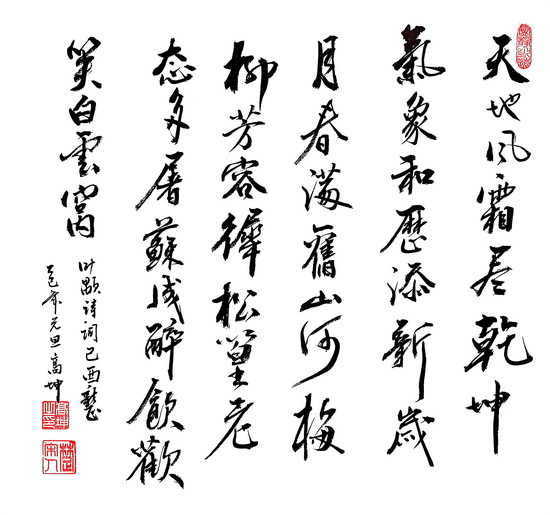 天地风霜尽乾坤
氣象和歷添新歲
月春滿舊山河梅
柳芳容徲松篁老
态多屠蘇成醉飲歡
笑白雲窩
叶颙诗词己酉
乙巳年元旦高坤